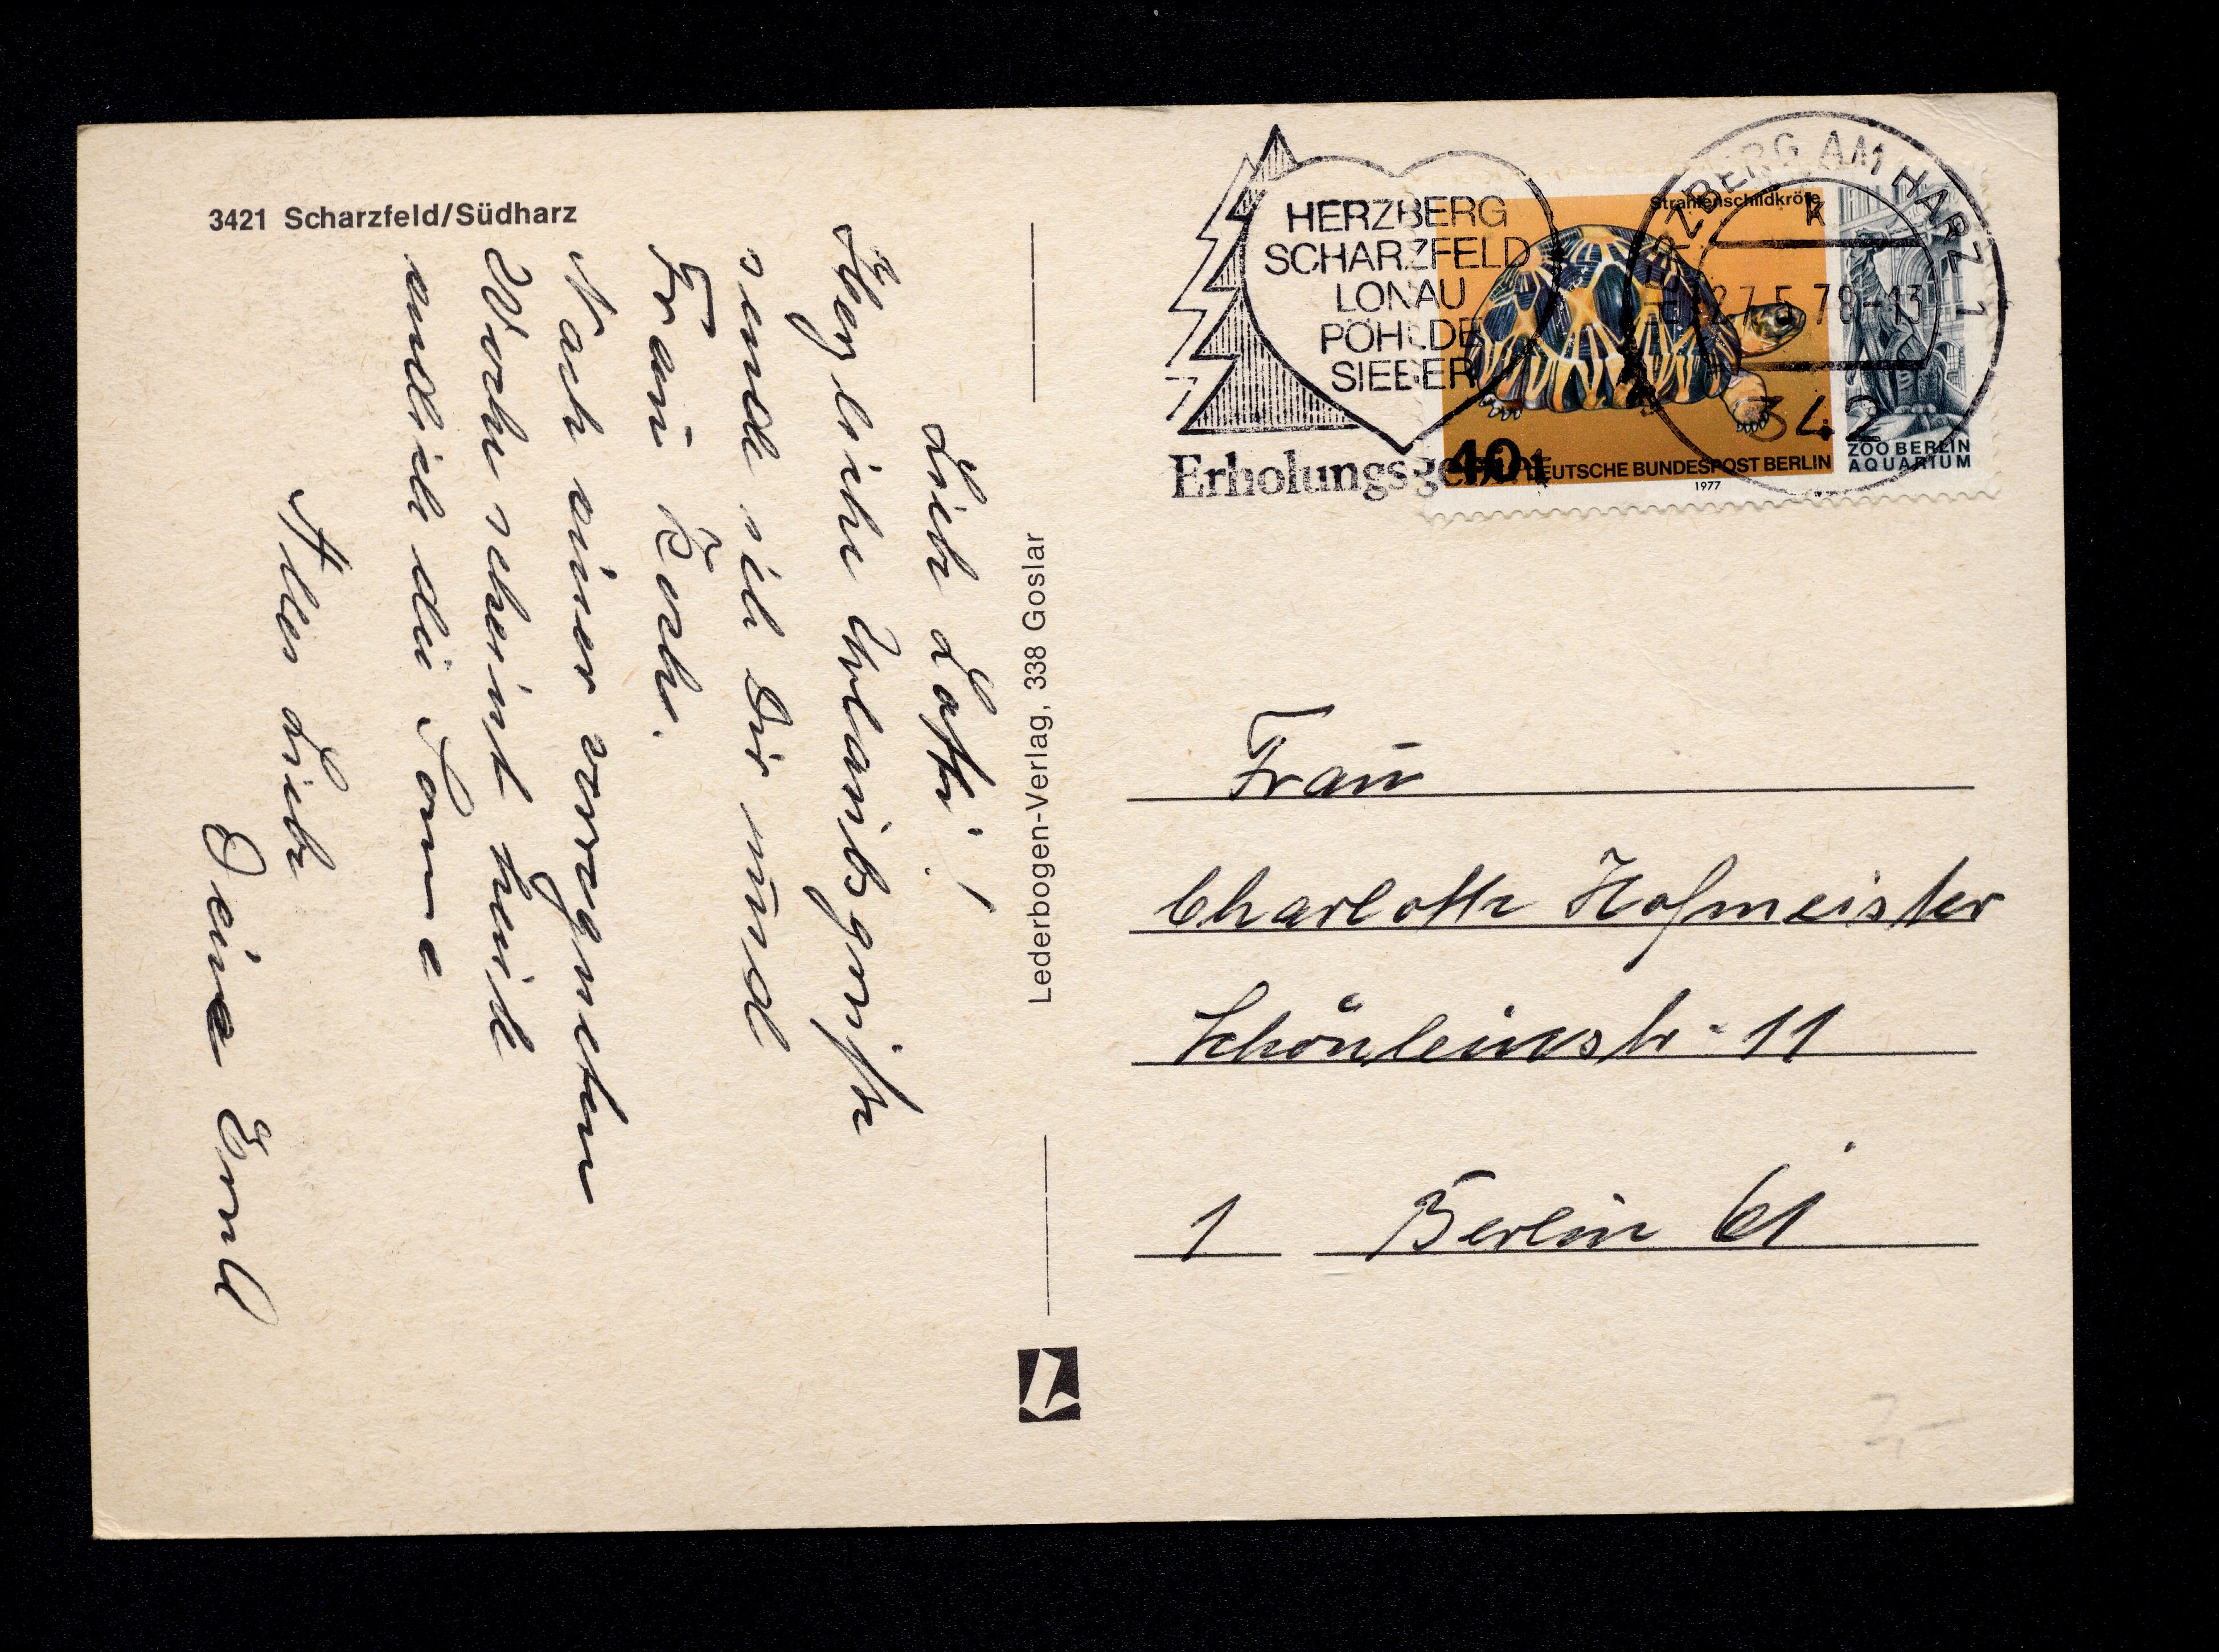 3421 Scharzfeld/Südharz
Liebe Lotti!
Herzliche Urlaubsgrüße
sende ich Dir und
Frau Borke.
Nach einer verregneten
Woche scheint heute
endlich die Sonne
Alles Liebe
Deine Emil
Lederbogen-Verlag, 338 Goslar
HERZBERG
SCHARZFELD
LONAU
PÖHLDE
SIEBER
Erholungsgebiet
HERZBERG AM HARZ 1
k
27.5.78-13
342
Strahlenschildkröte
40
DEUTSCHE BUNDESPOST BERLIN
1977
ZOO BERLIN
AQUARIUM
Frau
Charlotte Hofmeister
Schönleinstr. 11
1 Berlin 61
2,-